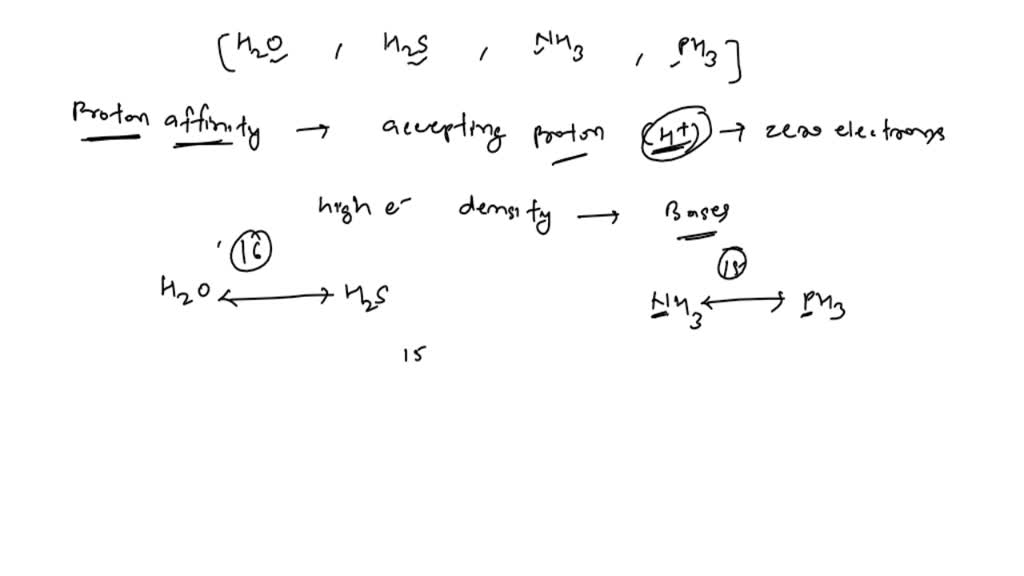 [H2O , H2S , NH3 , PH3]
Proton affinity → accepting proton (H+) → zero electrons
high e- density → Bases
16 15
H2O ↔ H2S NH3 ↔ PH3
15